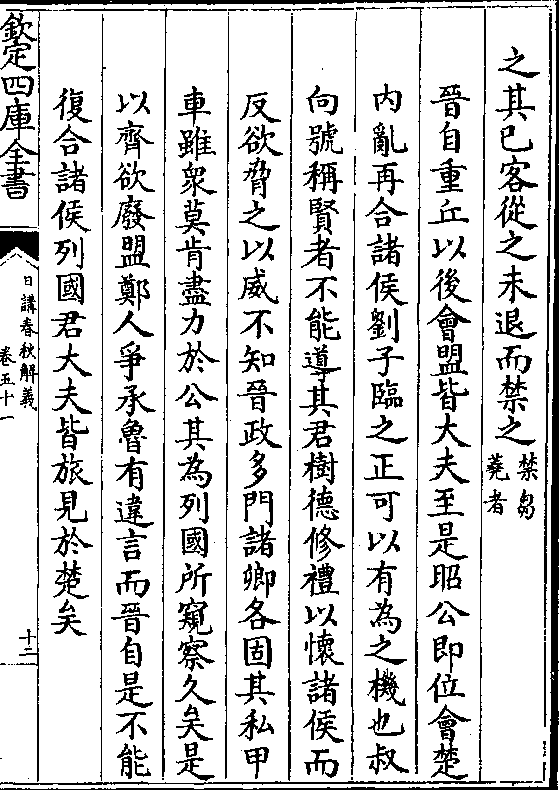 之其已客從之未退而禁之禁芻蕘者
晉自重丘以後會盟皆大夫至是昭公即位會楚
内亂再合諸侯劉子臨之正可以有為之機也叔
向號稱賢者不能導其君樹德修禮以懷諸侯而
反欲脅之以威不知晉政多門諸卿各固其私甲
車雖衆莫肯盡力於公其為列國所窺察久矣是
以齊欲廢盟鄭人爭承魯有違言而晉自是不能
復合諸侯列國君大夫皆旅見於楚矣
欽定四庫全書
日講春秋解義
卷五十一
十二